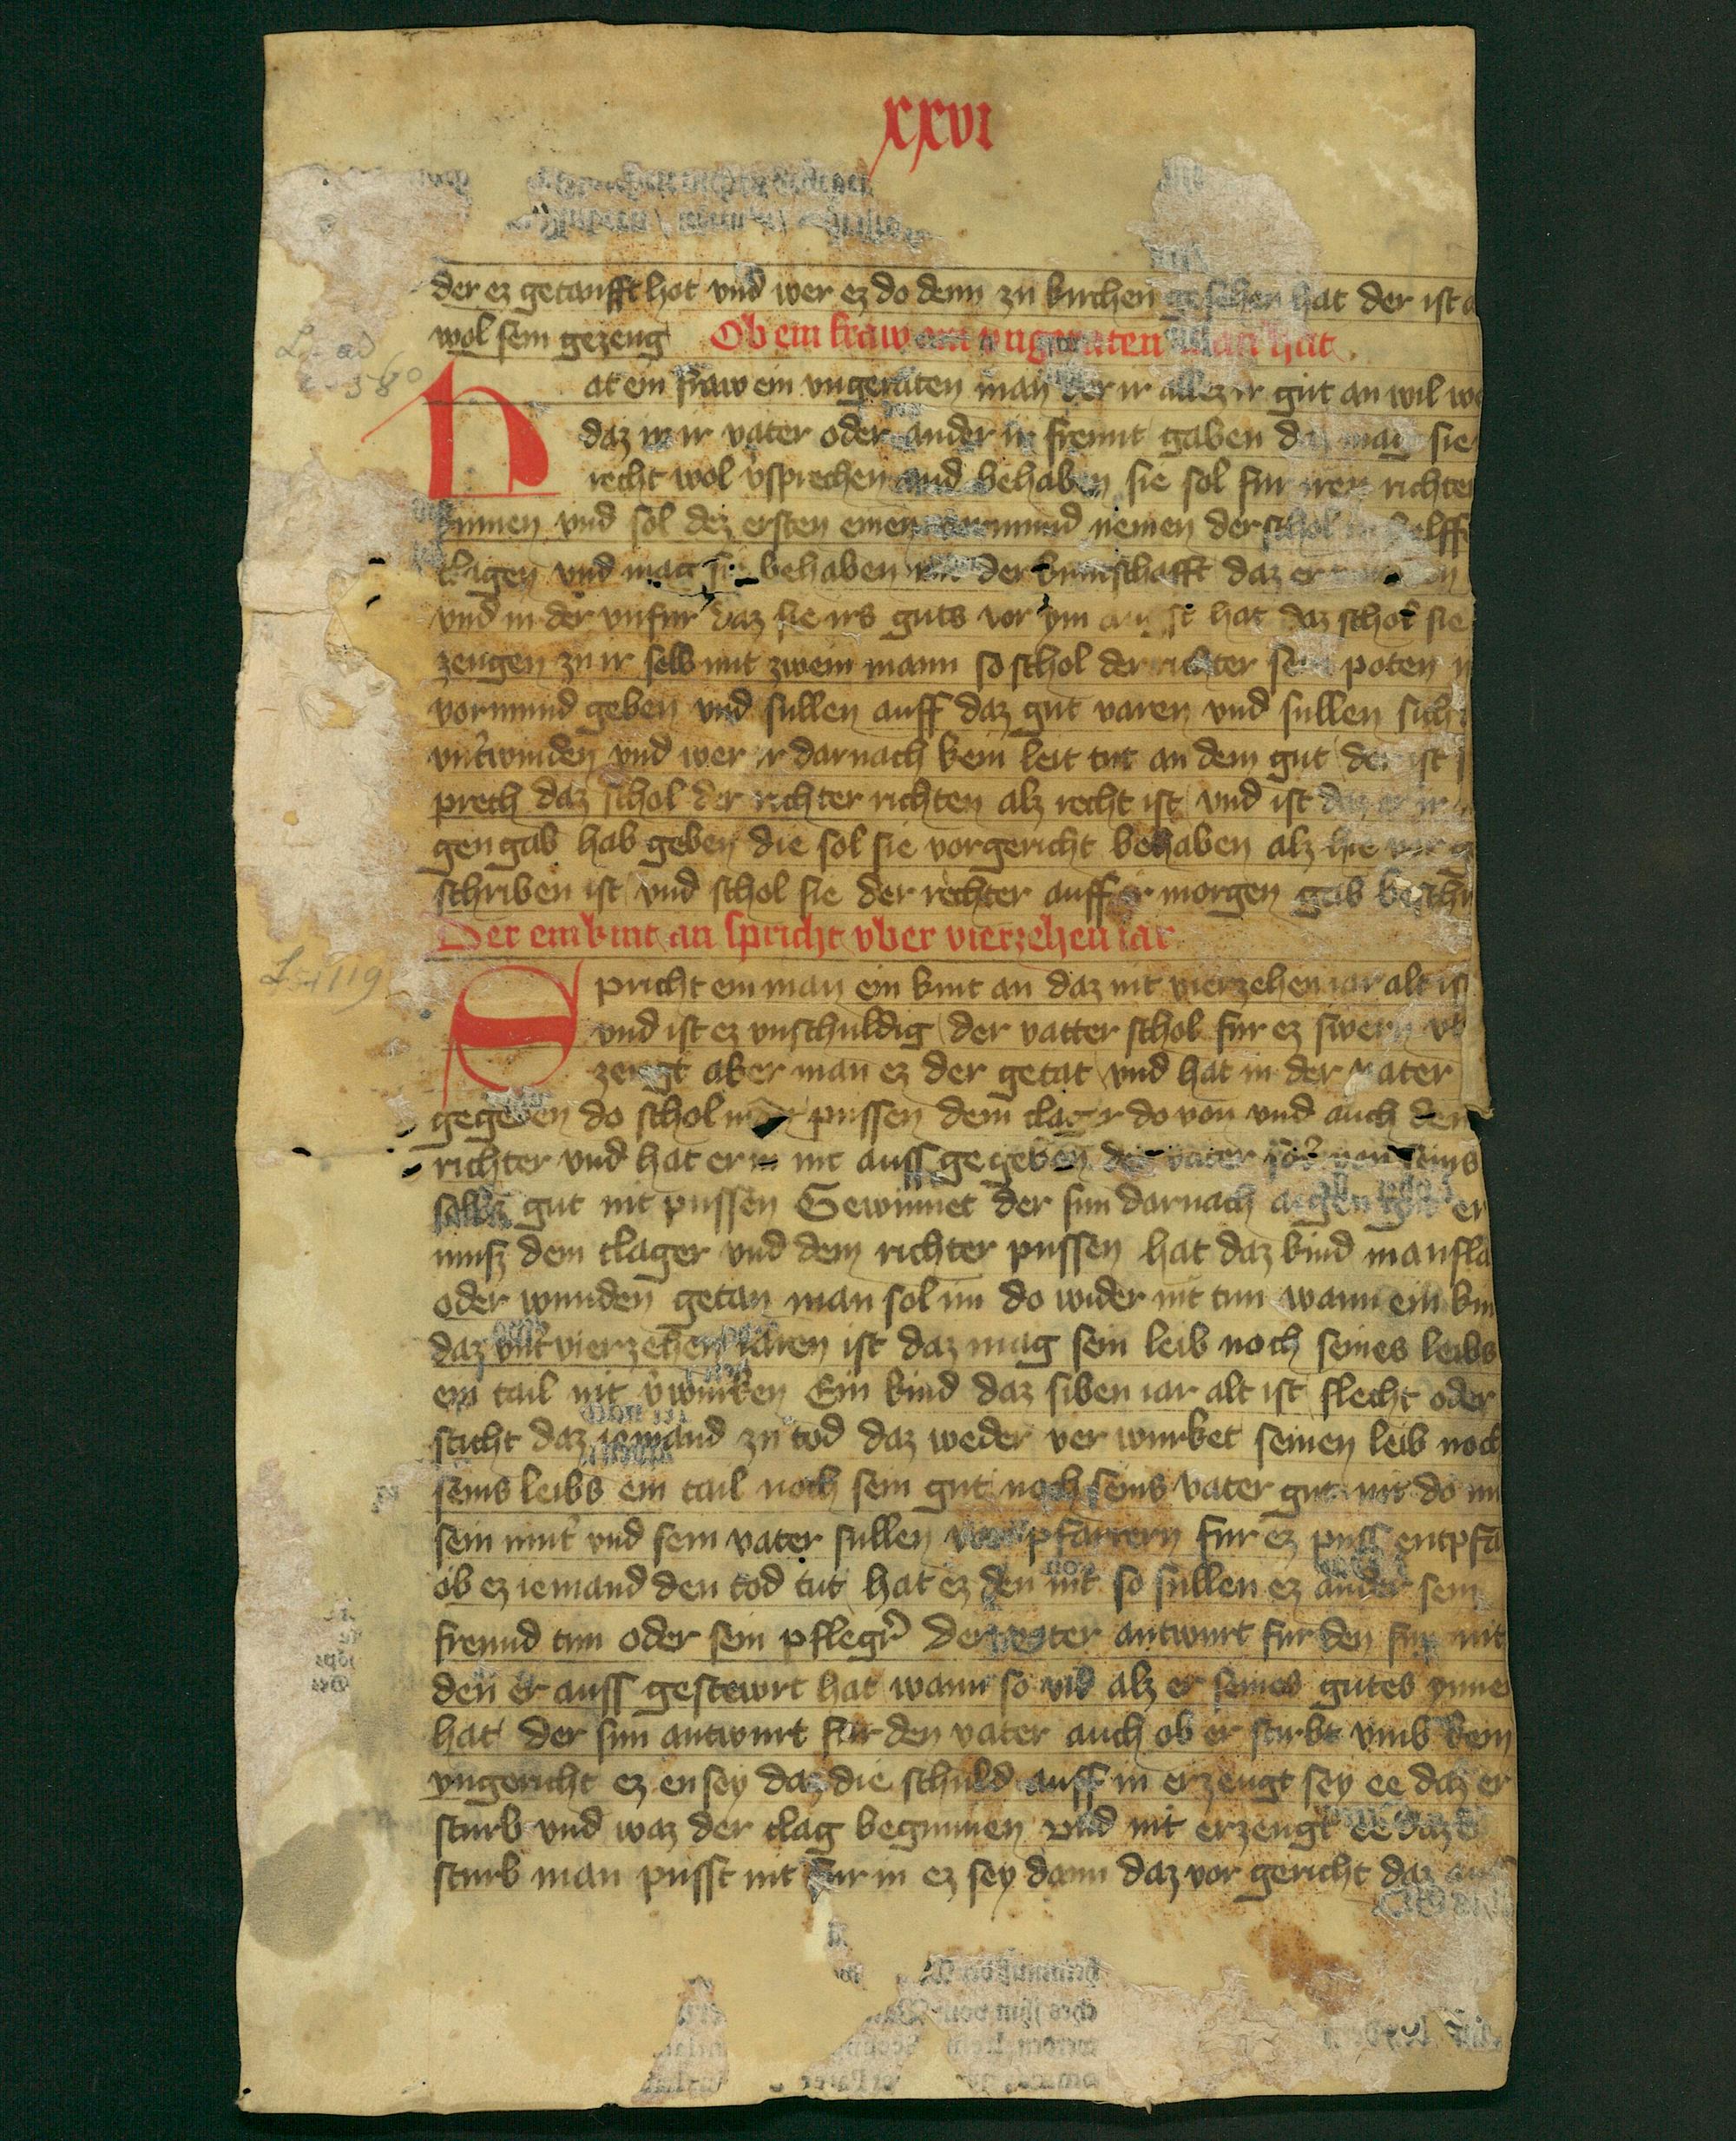 xxvi
der ez getaufft hat vnd wer ez do denn zu kirchen gesehen hat der ist a
wol sein gezeug Ob ein fraw ein vngeraten man hat
Hat ein fraw ein vngeraten man der ir allez ir gut an wil we
daz in ir vater oder ander ir freunt gaben daz mag sie
recht wol v̓sprechen vnd behaben sie sol fur iren richter
kumen vnd sol dez ersten einen vormund nemen der schol helff
clagen vnd mag sie behaben mit der kuntschafft daz er
vnd in der vnfur daz sie irs guts vor ym angst hat daz schol sie
zeugen zu ir selb mit zwein mann so schol der richter sein poten
vormund geben vnd sullen auff daz gut varen vnd sullen sich
vnt̓winden vnd wer ir darnach kein leit tut an dem gut der ist
prech daz schol der richter richten alz recht ist vnd ist daz er ir
gengab hab geben die sol sie vorgericht behaben alz hie vor g
schriben ist vnd schol sie der richter auff ir morgen gab beschir
Der ein kint an spricht vber vierzehen iar
Spricht ein man ein kint an daz nit vierzehen iar alt ist
vnd ist ez vnschuldig der vatter schol fur ez swern vb
zeugt aber man ez der getat vnd hat in der vater
gegeben do schol man pussen dem clager do von vnd auch dem
richter vnd hat er in nit auss gegeben der vater sol von seins
selbs gut nit pussen Gewinnet der sun darnach aigen gut er
muß dem clager vnd dem richter pussen hat daz kind mansla
oder wunden getan man sol im do wider nit tun wann ein kin
daz vnt̓ vierzehen iaren ist daz mag sein leib noch seines leibs
ein tail nit v̓wurken Ein kind daz siben iar alt ist slecht oder
sticht daz iemand zu tod daz weder ver wurket seinen leib noch
seins leibs ein tail noch sein gut noch seins vater gut nit do
sein mut̓ vnd sein vater sullen von pfarrern fur ez puss entpfa
ob ez iemand den tod tut hat ez den nit so sullen ez ander sein
freund tun oder sein pfleger̓ Der vater antwurt fur den sun nit
den er auss gestewrt hat wann so vil alz er seines gutes ynne
hat der sun antwurt fur den vater auch ob er stirbt vmb kein
vngericht ez ensey daz die schuld auff in erzeugt sey ee daz er
sturb vnd waz der clag begunnen vnd nit erzeugt ee daz
sturb man pusst nit fur in ez sey dann daz vor gericht daz